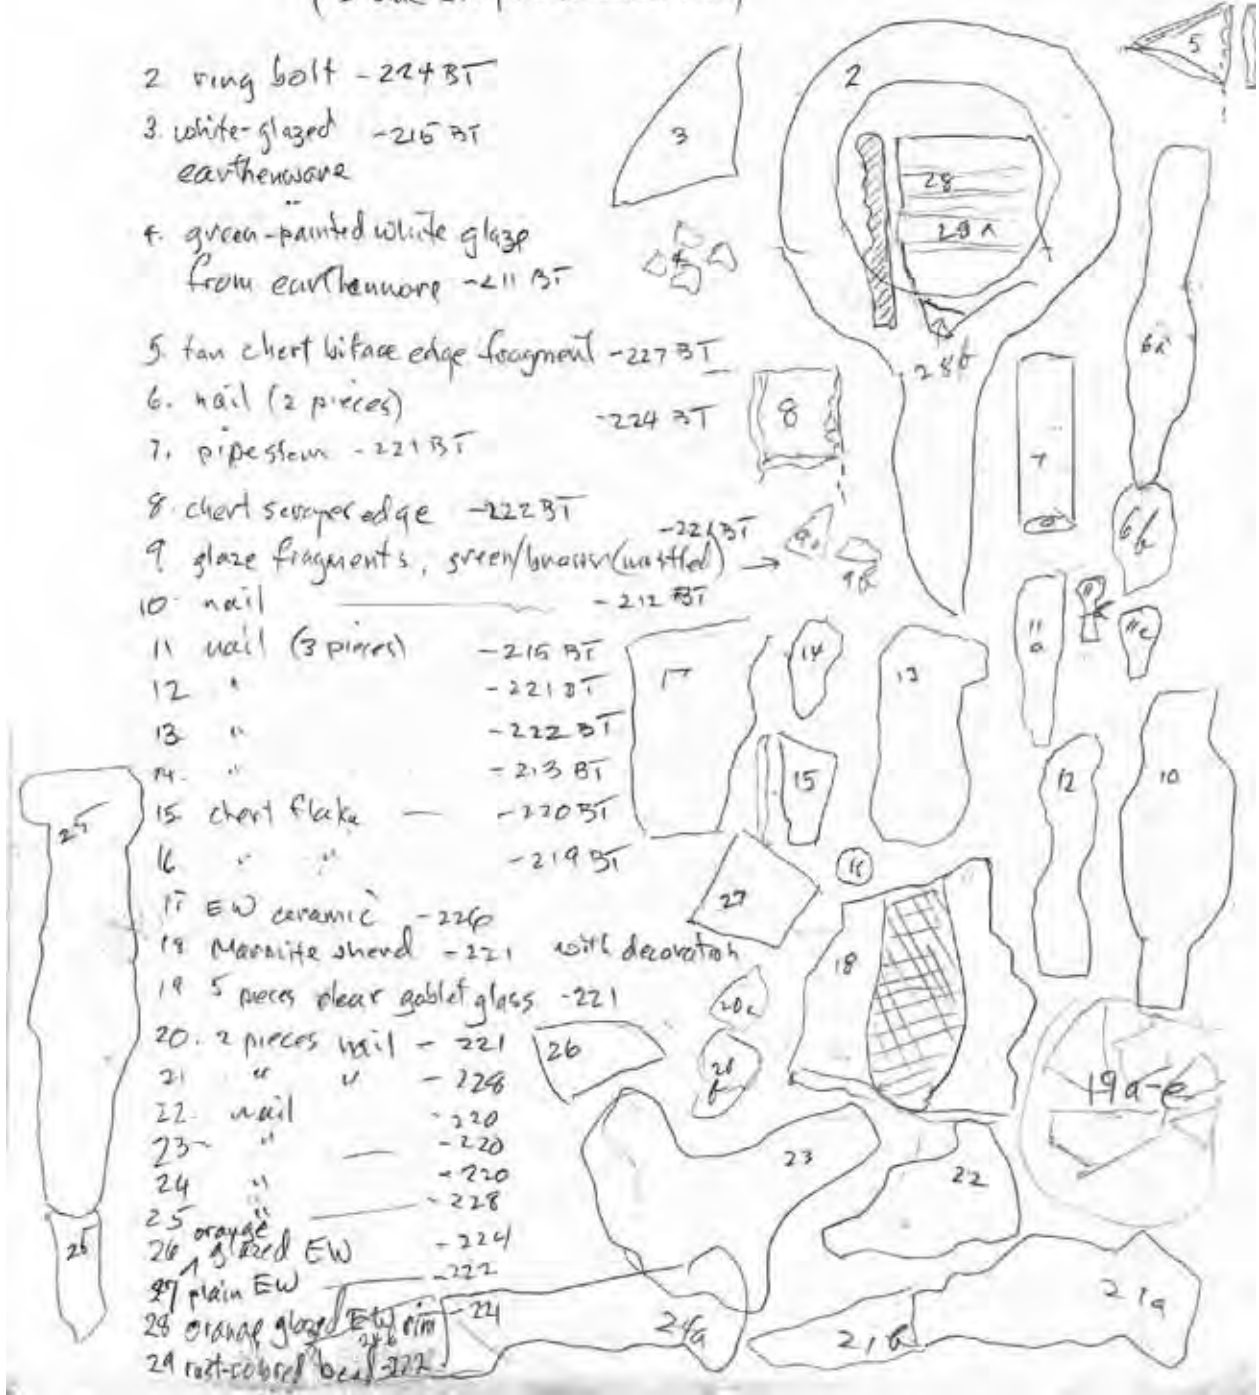 2 ring bolt - 224 BT
3. white-glazed - 215 BT
earthenware
4. green-painted white glaze
from earthenware - 211 BT
5. tan chert biface edge fragment - 227 BT
6. nail (2 pieces) - 224 BT
7. pipestem - 221 BT
8. chert scraper edge - 222 BT
9 glaze fragments, green/brown (mottled) → - 221 BT
10. nail - 212 BT
11 nail (3 pieces) - 215 BT
12 " - 221 BT
13 " - 222 BT
14. " - 213 BT
15 chert flake - 220 BT
16 " " - 219 BT
17 EW ceramic - 226
18 Marmite sherd - 221 with decoration
19 5 pieces clear goblet glass - 221
20. 2 pieces nail - 221
21 " " - 228
22. nail - 220
23 " - 220
24 " - 220
25 " - 228
26 orange glazed EW - 224
27 plain EW - 222
28 orange glazed EW rim - 221
29 rust-colored bead - 222
2
5
3
28
28a
28b
6a
8
7
6b
9a
9b
11a
11c
17
14
13
12
10
15
16
25
27
18
20a
26
20b
19a-e
23
22
25
24a
24b
21b
21a